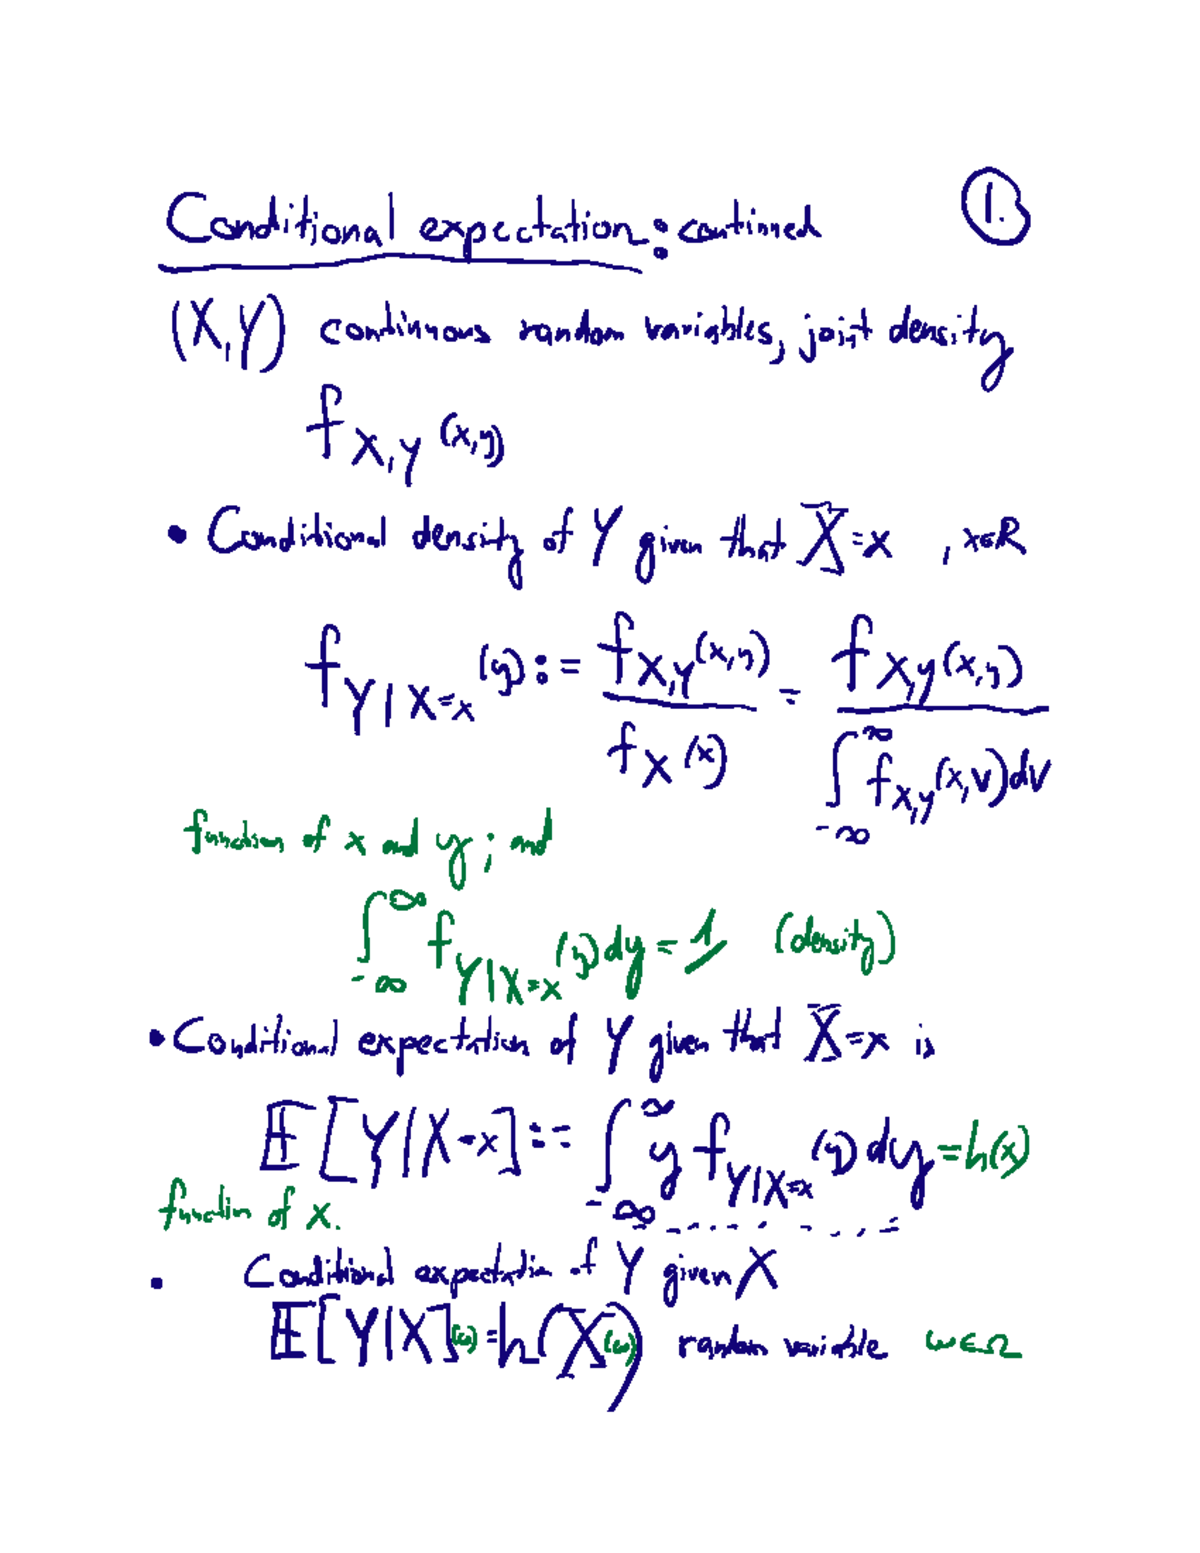 Conditional expectation: continued 1.
(X,Y) continuous random variables, joint density
f_{X,Y}(x,y)
• Conditional density of Y given that X=x , x∈ℝ
f_{Y|X=x}(y) := f_{X,Y}(x,y) / f_X(x) = f_{X,Y}(x,y) / ∫_{-∞}^{∞} f_{X,Y}(x,v)dv
function of x and y; and
∫_{-∞}^{∞} f_{Y|X=x}(y) dy = 1 (density)
• Conditional expectation of Y given that X=x is
𝔼[Y|X=x] := ∫_{-∞}^{∞} y f_{Y|X=x}(y) dy = h(x)
function of x.
• Conditional expectation of Y given X
𝔼[Y|X](ω) = h(X(ω)) random variable ω∈Ω